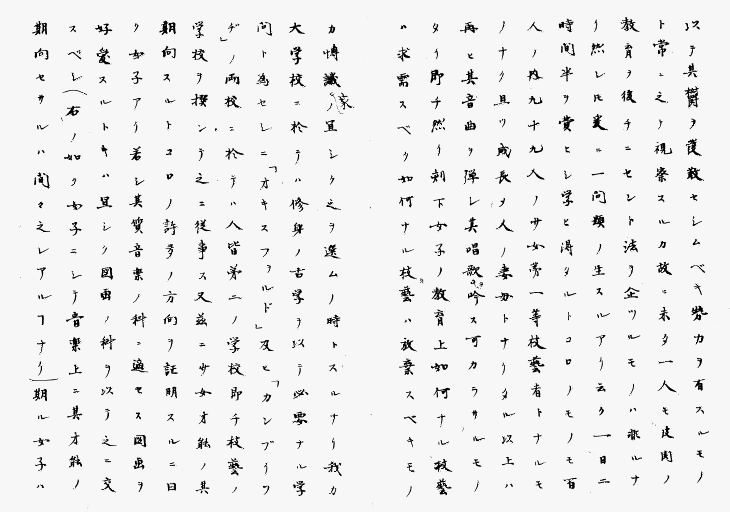 以テ其欝ヲ護散セシムベキ勢力ヲ有スルモノ
ト常ニ之ヲ視察スルカ故ニ未タ一人モ建国ノ
教育ヲ後チニセント法ヲ企ツルモノハ非ルナ
リ然レ𪜈爰ニ一問類ノ生スルアリ云ク一日ニ
時間半ヲ費ヒシ学ヒ得タルトコロノモノモ百
人ノ内九十九人ノ少女第一等技藝者トナルモ
ノナク且ツ成長タ人ノ妻ナトナリタル以上ハ
再ヒ其音曲ヲ弾レ其唱歌ヲ吟ス可カラサルモノ
タリ即チ然リ剣下女子ノ教育上如何ナル技藝
ハ求需スベク如何ナル技藝ハ放棄スベキモノ
カ博識家ノ宜シク之ヲ選ムノ時トスルナリ我カ
大学校ニ於テハ修身ノ古学ヲ以テ必要ナル学
問ト為セシニ「オキスフヲルド」及ヒ「カンブリツ
ヂ」ノ両校ニ於テハ人皆第二ノ学校即チ技藝ノ
学校ヲ撰ンテ之ニ従事ス又茲ニ少女才能ノ其
期向スルトコロノ許多ノ方向ヲ証明スルニ曰
ク女子アリ若シ其質音楽ノ科ニ適セス図画ヲ
好愛スルトキハ宜シク図画ノ科ヲ以テ之ニ交
スベシ（右ノ如ク女子ニシテ音楽上ニ其才能ノ
期向セサルハ間々之レアルヿナリ）期ル女子ハ